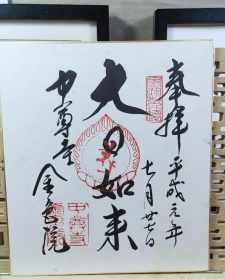 奉拝 平成元年
七月廿七日
大日如来
中尊寺
金色院